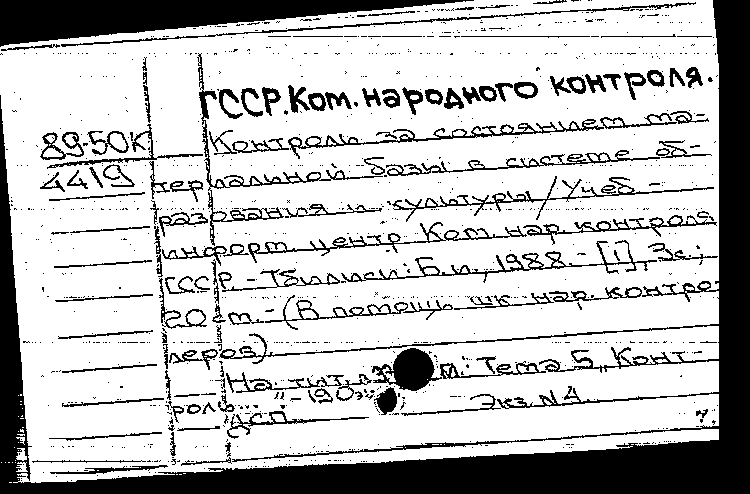 ГССР. Ком. народного контроля.
89-50К Контроль за состоянием ма-
4419 териальной базы в системе об-
разования и культуры / Учеб.-
информ. центр Ком. нар. контроля
ГССР. - Тбилиси: Б.и., 1988. - [1], 3с.;
20 см. - (В помощь шк. нар. контро-
леров).
На тит. л. : Тема 5 „Конт-
роль..." - 190
ДСП. Экз. N 4.
7.